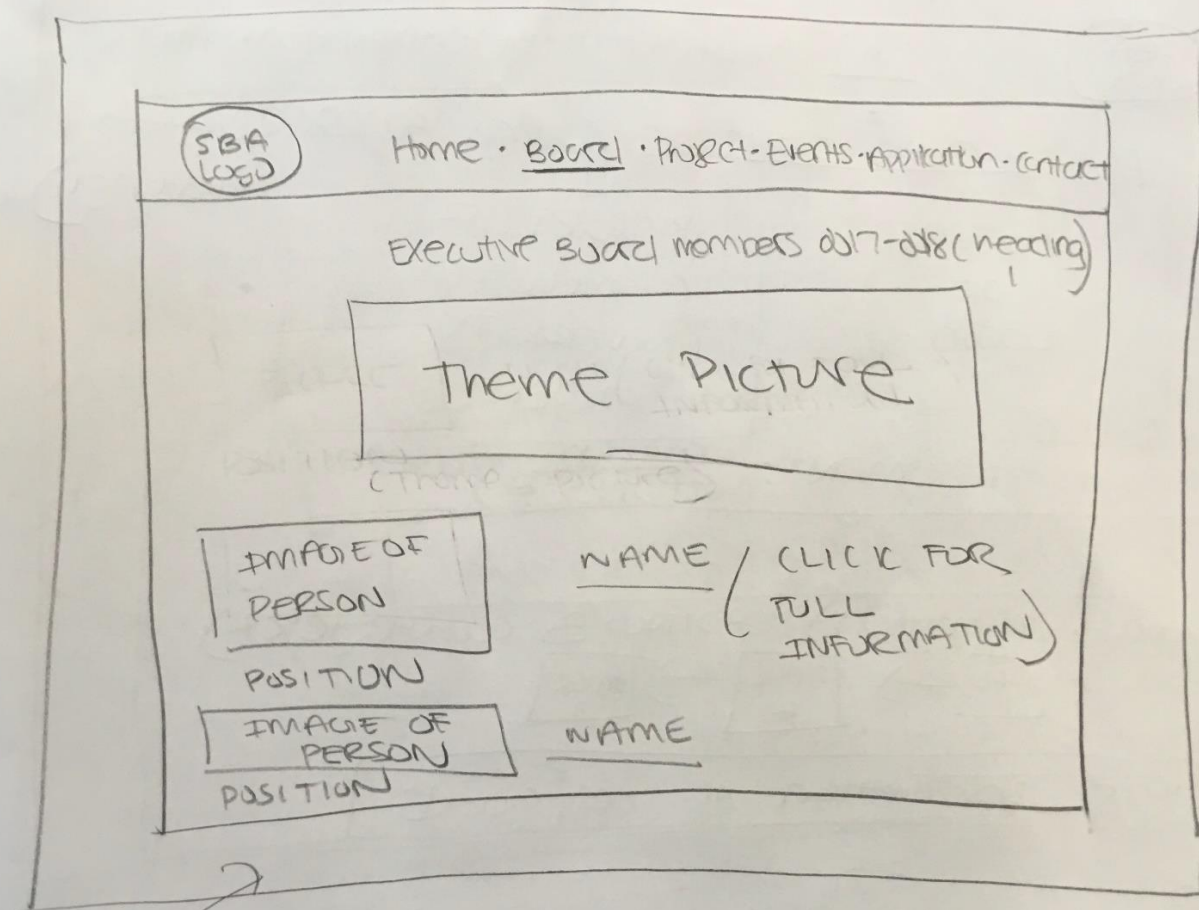 SBA
LOGO
Home · Board · Project - Events · Application · Contact
Executive Board members 2017-2018 (heading)
Theme Picture
(Theme picture)
IMAGE OF
PERSON
NAME (CLICK FOR
FULL
INFORMATION)
POSITION
IMAGE OF
PERSON
NAME
POSITION